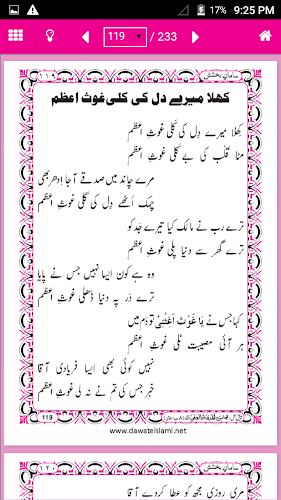 17% 9:25 PM
119 / 233
سامانِ بخشش
۱۱۹
کھلا میرے دل کی کلی غوث اعظم
کھلا میرے دِل کی کلی غوثِ اعظم
مٹا قلب کی بے کلی غوثِ اعظم
مرے چاند میں صدقے آجا اِدھر بھی
چمک اُٹھے دِل کی گلی غوثِ اعظم
ترے ربّ نے مالک کیا تیرے جَد کو
ترے گھر سے دنیا پلی غوثِ اعظم
وہ ہے کون ایسا نہیں جس نے پایا
ترے دَر پہ دنیا ڈھلی غوثِ اعظم
کہا جس نے یَا غَوْث اَغِثْنِیْ تو دَم میں
ہر آئی مصیبت ٹلی غوثِ اعظم
نہیں کوئی بھی ایسا فریادی آقا
خبر جس کی تم نے نہ لی غوثِ اعظم
119
www.dawateislami.net
سامانِ بخشش
۱۲۰
مری روزی مجھ کو عطا کردے آقا